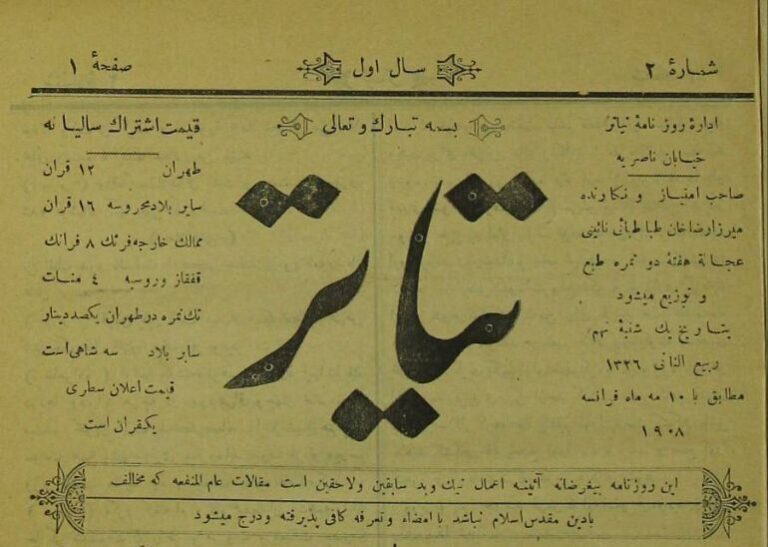 شمارهٔ ۲
سال اول
صفحهٔ ۱
بسمه تبارك و تعالی
تیاتر
ادارهٔ روزنامهٔ تیاتر
خیابان ناصریه
صاحب امتیاز و نگارنده
میرزا رضاخان طباطبائی نائینی
عجالة هفتهٔ دو نمره طبع
و توزیع میشود
بتاریخ یك شنبهٔ نهم
ربیع الثانی ۱۳۲۶
مطابق با ۱۰ مه ماه فرانسه
۱۹۰۸
قیمت اشتراك سالیانه
طهران ۱۲ قران
سایر بلاد محروسه ۱۶ قران
ممالك خارجه فرنك ۸ فرانك
قفقاز و روسیه ٤ منات
تك نمره در طهران یکصد دینار
سایر بلاد سه شاهی است
قیمت اعلان سطری
یکقران است
این روزنامه بیغرضانه آئینه اعمال نیك و بد سابقین و لاحقین است مقالات عام المنفعه که مخالف
بادین مقدس اسلام نباشد با امضاء و تعرفه کافی پذیرفته و درج میشود